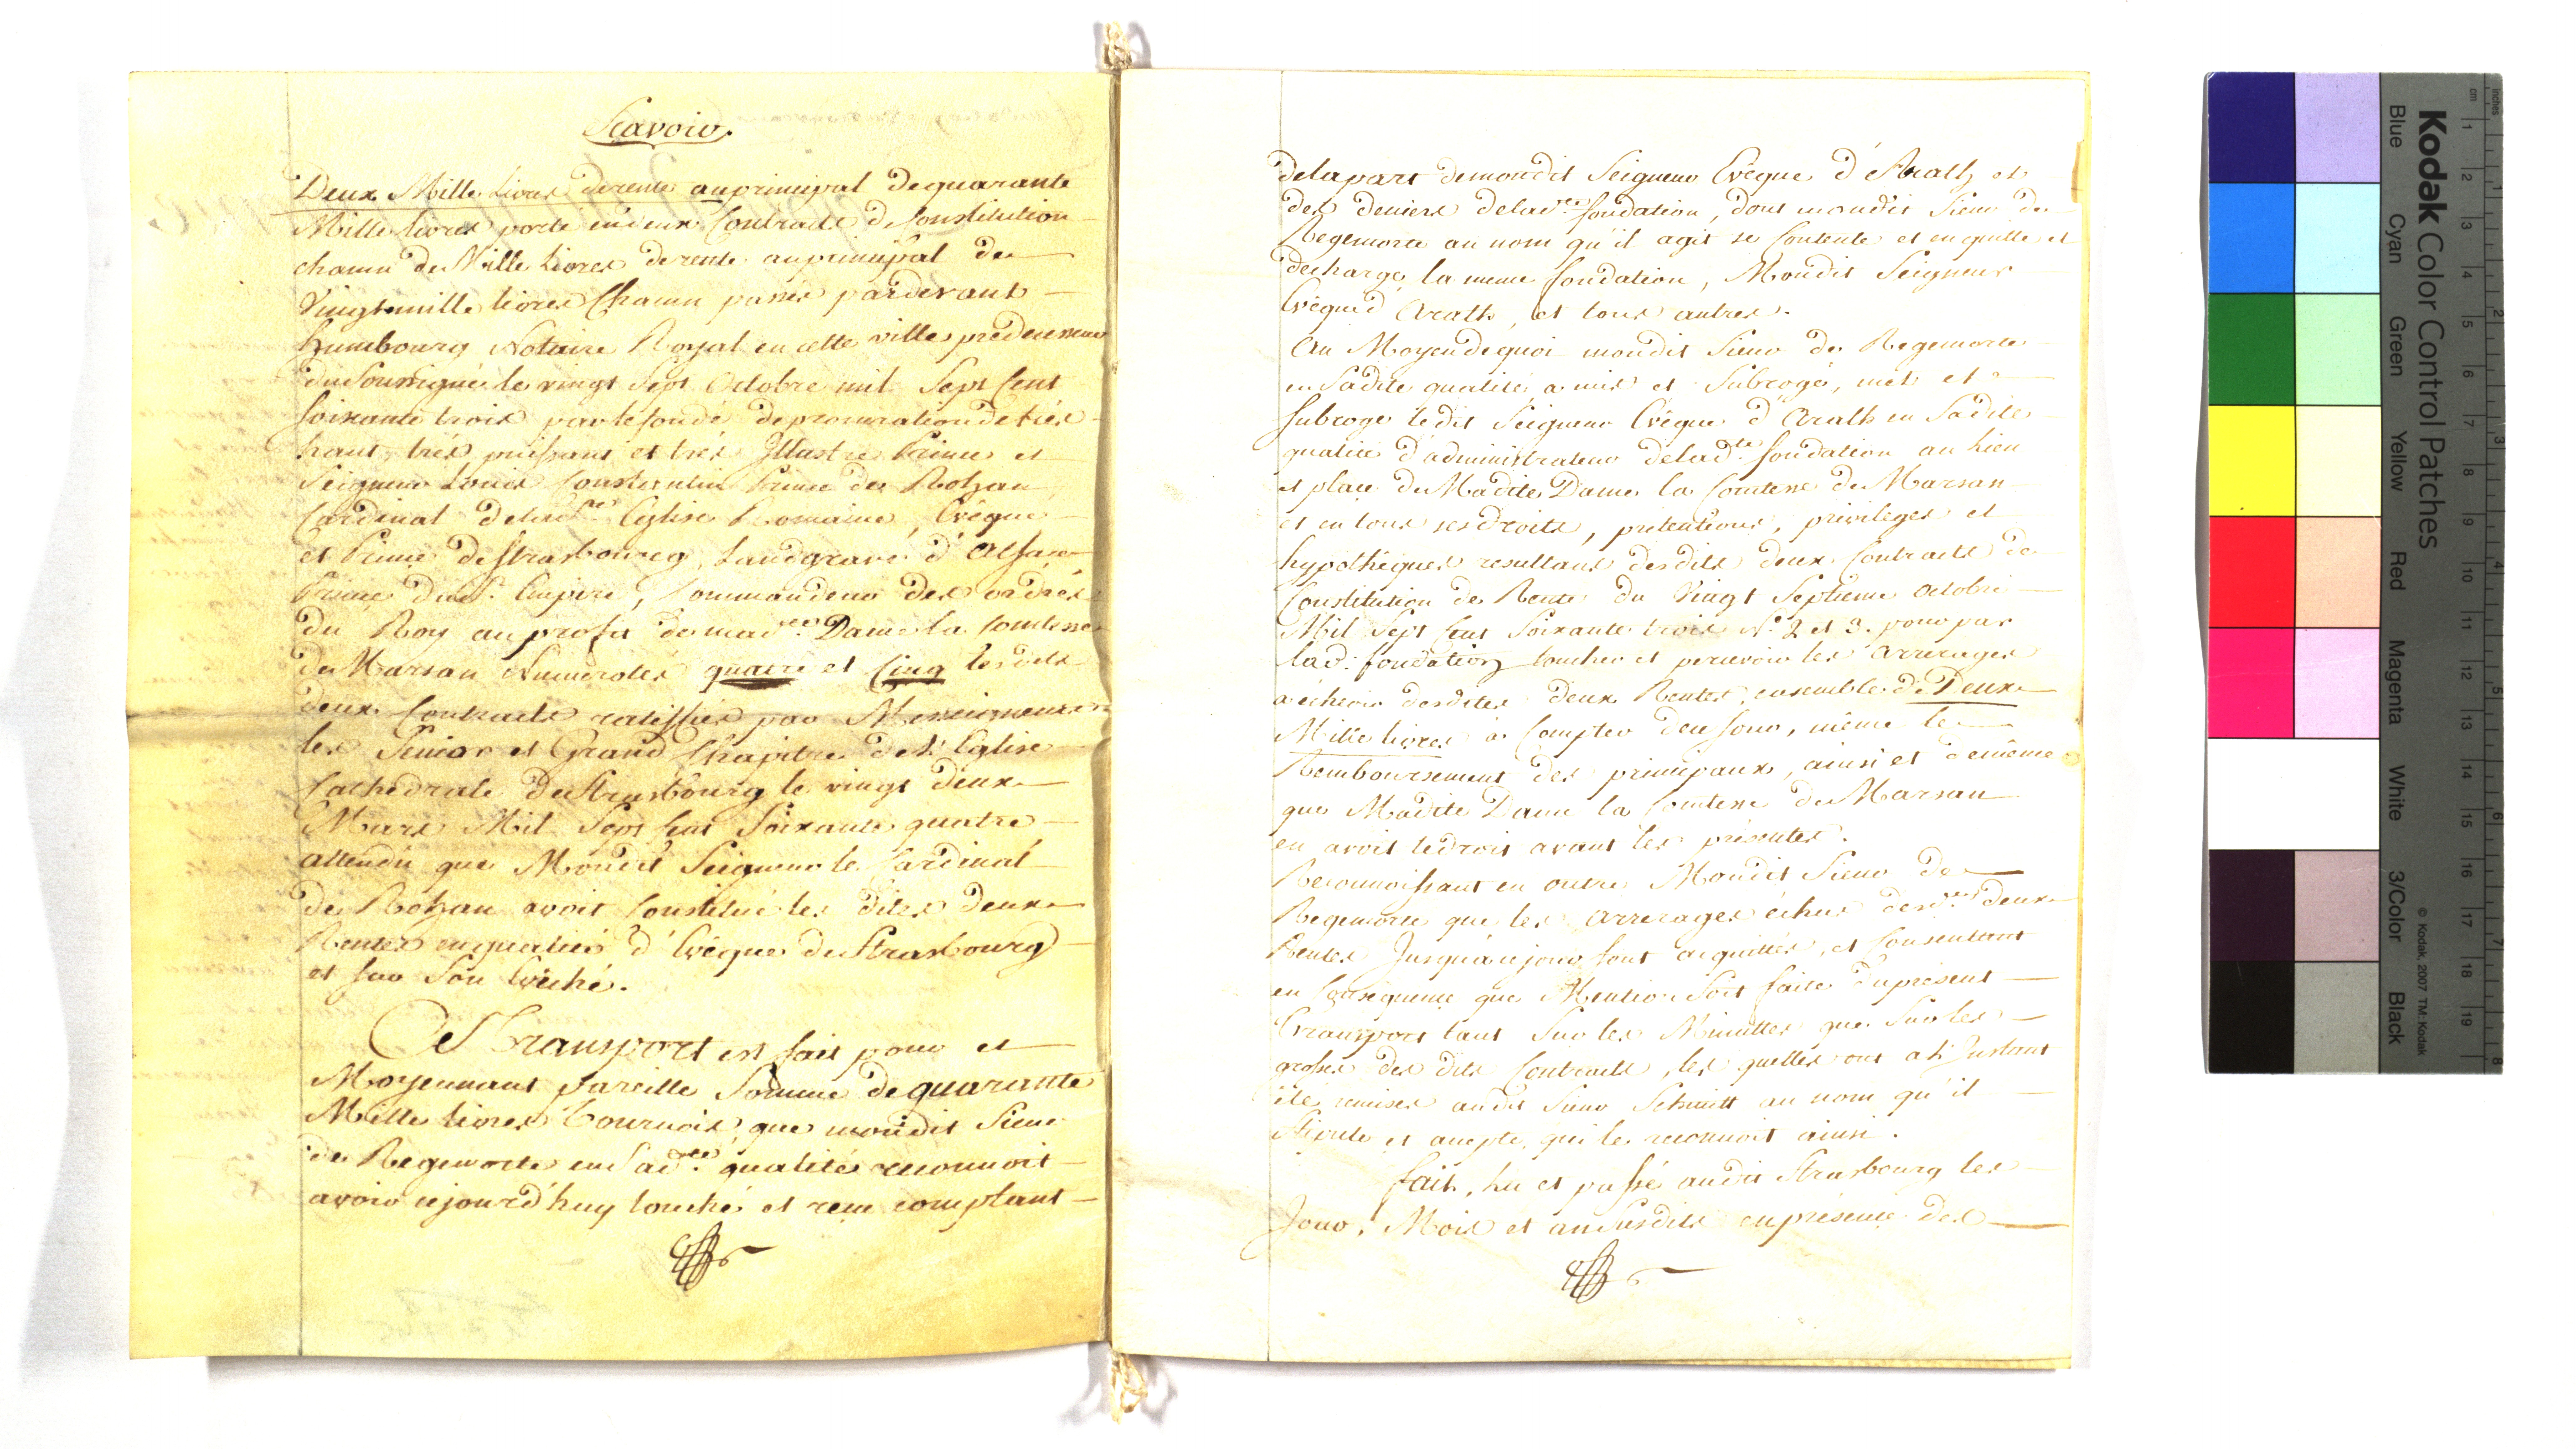 Scavoir.
Deux Mille Livres de rente au principal de quarante
Mille livres porté en deux Contracts de Constitution
chacun de Mille Livres de rente au principal de
Vingt mille livres Chacun passés pardevant
Humbourg Notaire Royal en cette ville prédecesseur
du Soussigné le vingt Sept Octobre mil Sept Cent
Soixante trois par le fondé de procuration de très
haut, très puissant et très Illustre Prince et
Seigneur Louis Constantin Prince de Rohan
Cardinal de lad.e Eglise Romaine, Evêque
et Prince de Strasbourg, Landgrave d'Alsace
Prince du St. Empire, Commandeur des ordres
du Roy au profit de mad.e Dame la Comtesse
de Marsan Numerotés quatre et Cinq lesdits
deux Contracts ratiffiés par Messeigneurs
les Senior et Grand Chapitre de l'Eglise
Cathédrale de Strasbourg le vingt deux
Mars Mil Sept Cent Soixante quatre
attendu que Mondit Seigneur le Cardinal
de Rohan avoit Constitué les dites deux
Rentes en qualité d'Evêque de Strasbourg
et sur Son Evêché.
Ce Transport est fait pour et
Moyennant pareille Somme de quarante
Mille livres Tournois que mondit Sieur
de Regemorte en Sad.te qualité reconnoit
avoir cejourd'huy touché et reçu comptant
de la part de mondit Seigneur Evêque d'Arath et
des deniers de lad.te fondation, dont mondit Sieur de
Regemorte au nom qu'il agit se Contente et en quitte et
decharge la meme fondation, Mondit Seigneur
Evêque d'Arath, et tous autres.
Au Moyen de quoi mondit Sieur de Regemorte
en Sadite qualité a mis et Subrogé, met et
Subroge ledit Seigneur Evêque d'Arath en Sadite
qualité d'administrateur de lad.te fondation au Lieu
et place de Madite Dame la Comtesse de Marsan
et en tous ses droits, prétentions, privileges et
hypothéques resultans desdits deux Contracts de
Constitution de Rente du Vingt Septieme Octobre
Mil Sept Cent Soixante trois No. 2 et 3. pour par
lad: fondation toucher et percevoir les Arrerages
à échoir desdites deux Rentes, ensemble de Deux
Mille livres à Compter de ce Jour, même le
Remboursement des principaux, ainsi et de même
que Madite Dame la Comtesse de Marsan
en avoit le droit avant les présentes.
Reconnoissant en outre Mondit Sieur de
Regemorte que les Arrerages échus desd.tes deux
Rentes Jusqu'à ce jour sont acquittés, et Consentant
en Conséquence que Mention Soit faite du présent
Transport tant Sur les Minuttes que Sur les
grosses des dits Contracts, les quelles ont a l'Instant
été remises audit Sieur Schmitt au nom qu'il
Stipule et accepte, qui le reconnoit ainsi.
fait, lu et passé audit Strasbourg les
Jour, Mois et an Susdits en présence des